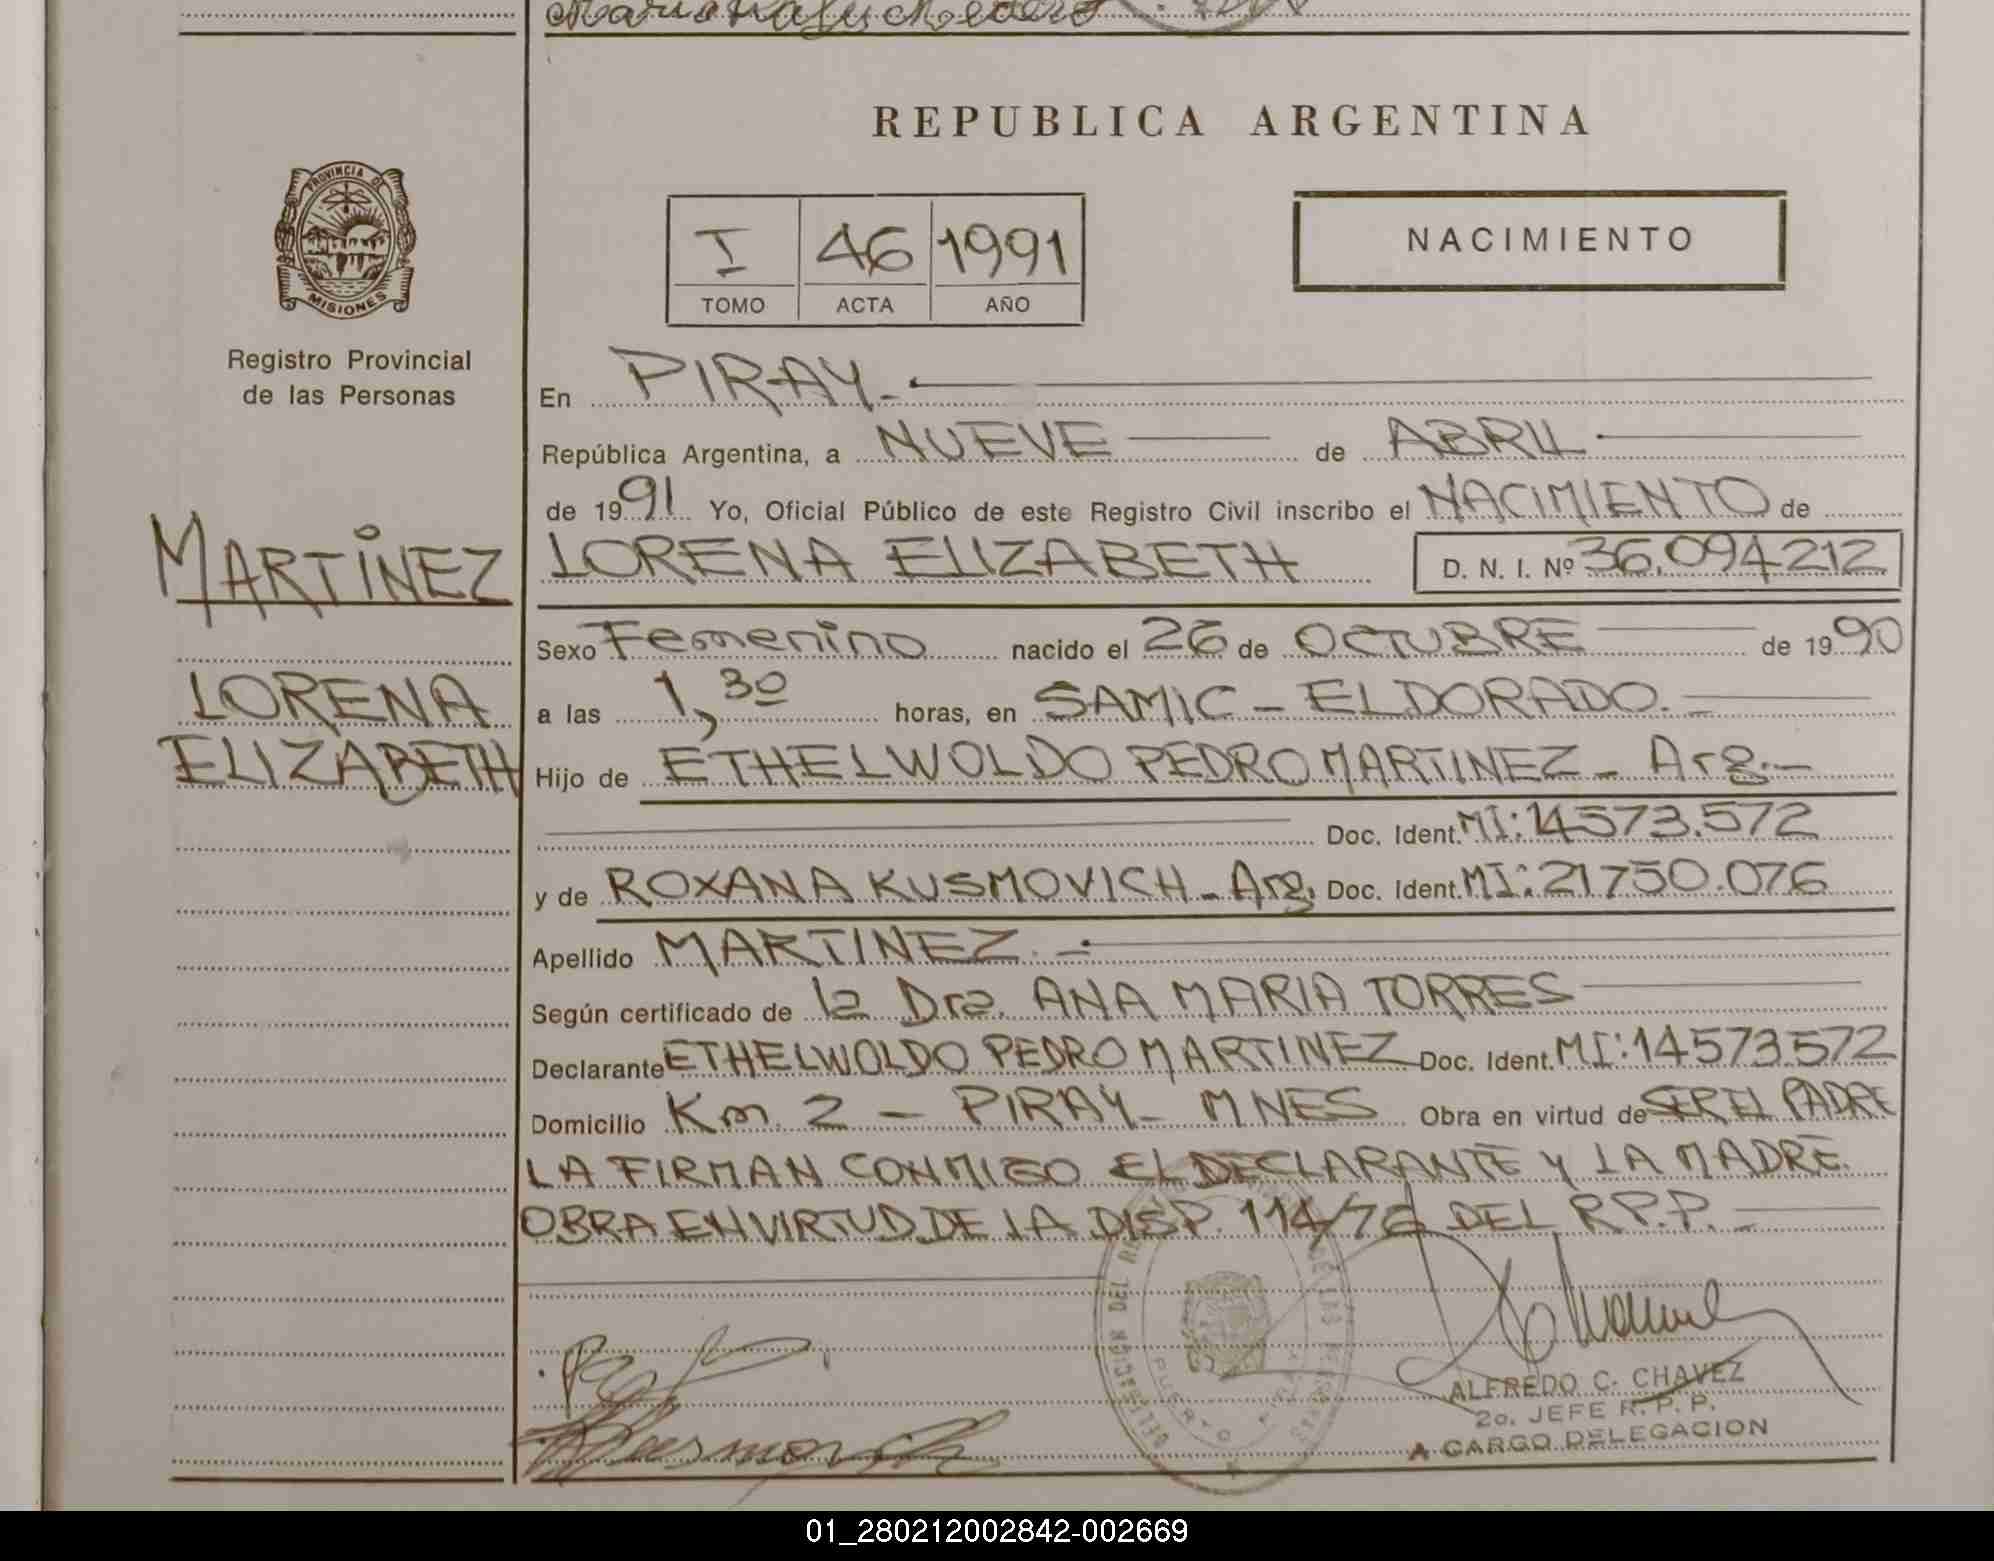 REPUBLICA ARGENTINA
PROVINCIA DE
MISIONES
Registro Provincial
de las Personas
I 46 1991
TOMO ACTA AÑO
NACIMIENTO
En PIRAY.-
República Argentina, a NUEVE de ABRIL
de 1991 Yo, Oficial Público de este Registro Civil inscribo el NACIMIENTO de
MARTINEZ
LORENA ELIZABETH D. N. I. Nº 36.094212
Sexo Femenino nacido el 26 de OCTUBRE de 1990
LORENA
a las 1,30 horas, en SAMIC - ELDORADO.-
ELIZABETH
Hijo de ETHELWOLDO PEDRO MARTINEZ - Arg.-
Doc. Ident. MI:14573.572
y de ROXANA KUSMOVICH - Arg. Doc. Ident. MI:21750.076
Apellido MARTINEZ.-
Según certificado de la Dra. ANA MARIA TORRES
Declarante ETHELWOLDO PEDRO MARTINEZ Doc. Ident. MI:14573.572
Domicilio Km. 2 - PIRAY - MNES Obra en virtud de SER EL PADRE
LA FIRMAN CONMIGO EL DECLARANTE Y LA MADRE.
OBRA EN VIRTUD DE LA DISP. 114/76 DEL R.P.P. -
ALFREDO C. CHAVEZ
2o. JEFE R. P. P.
A CARGO DELEGACION
01_280212002842-002669